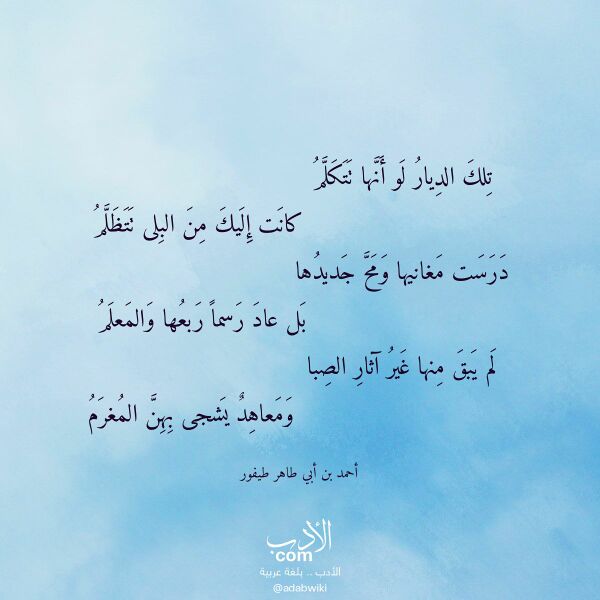 تِلكَ الدِيارُ لَو أَنَّها تَتَكَلَّمُ
كانَت إِلَيكَ مِنَ البِلى تَتَظَلَّمُ
دَرَسَت مَغانيها وَمَحَّ جَديدُها
بَل عادَ رَسماً رَبعُها وَالمَعلَمُ
لَم يَبقَ مِنها غَيرُ آثارِ الصِبا
وَمَعاهِدٌ يَشجى بِهِنَّ المُغرَمُ
أحمد بن أبي طاهر طيفور
الأدب
com
الأدب .. بلغة عربية
@adabwiki